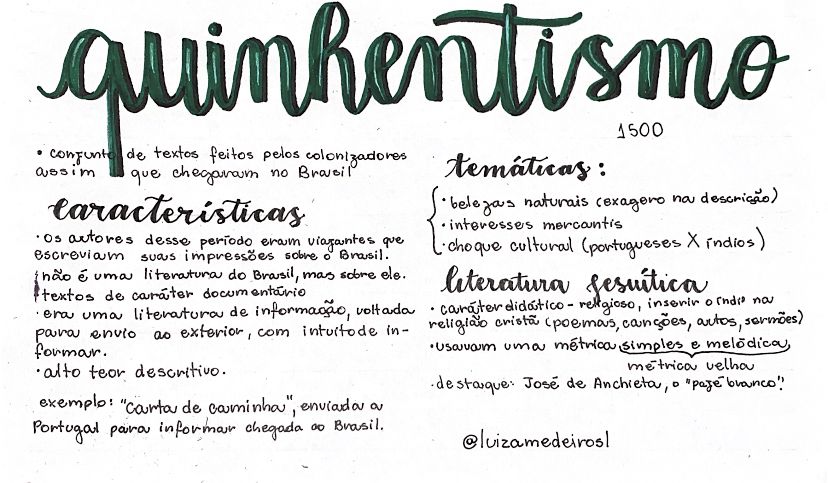 quinhentismo
1500
• conjunto de textos feitos pelos colonizadores
assim que chegaram no Brasil
características
• os autores desse período eram viajantes que
escreviam suas impressões sobre o Brasil.
não é uma literatura do Brasil, mas sobre ele.
textos de caráter documentário
• era uma literatura de informação, voltada
para envio ao exterior, com intuito de in-
formar.
• alto teor descritivo.
exemplo: "carta de caminha", enviada a
Portugal para informar chegada ao Brasil.
temáticas:
• belezas naturais (exagero na descrição)
• interesses mercantis
• choque cultural (portugueses X índios)
literatura jesuítica
• caráter didático - religioso, inserir o índio na
religião cristã (poemas, canções, autos, sermões)
• usavam uma métrica simples e melódica,
métrica velha
• destaque: José de Anchieta, o "pajé branco"!
@luizamedeirosl